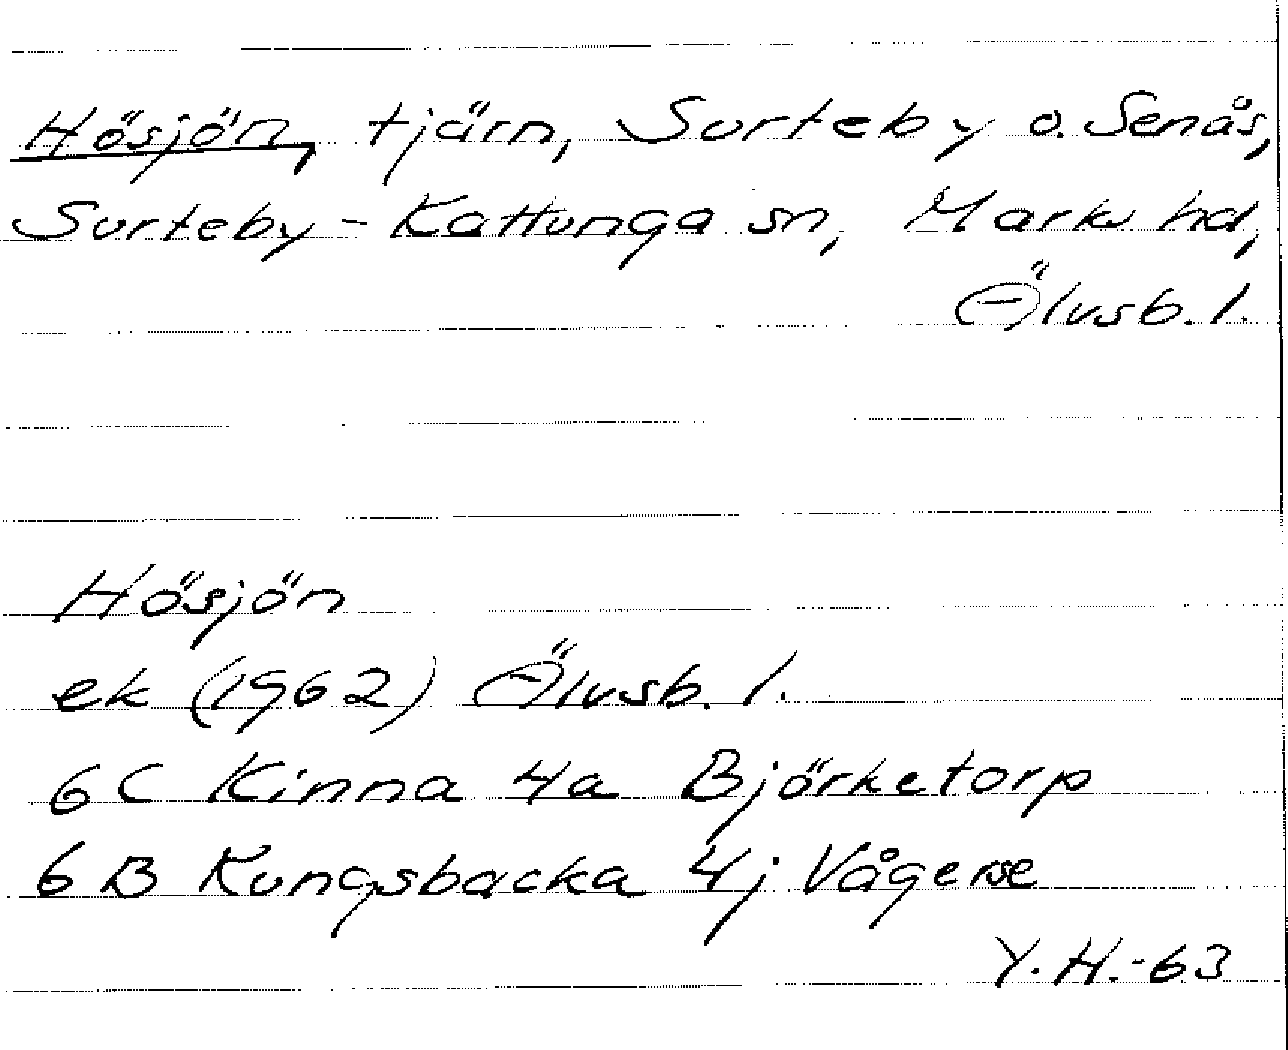 Hösjön, tjärn, Surteby o. Senås,
Surteby-Kattunga sn, Marks hd,
Älvsb. l.
Hösjön
ek (1962) Älvsb. l.
6C Kinna 4a Björketorp
6B Kungsbacka 4j
Y.H.-63